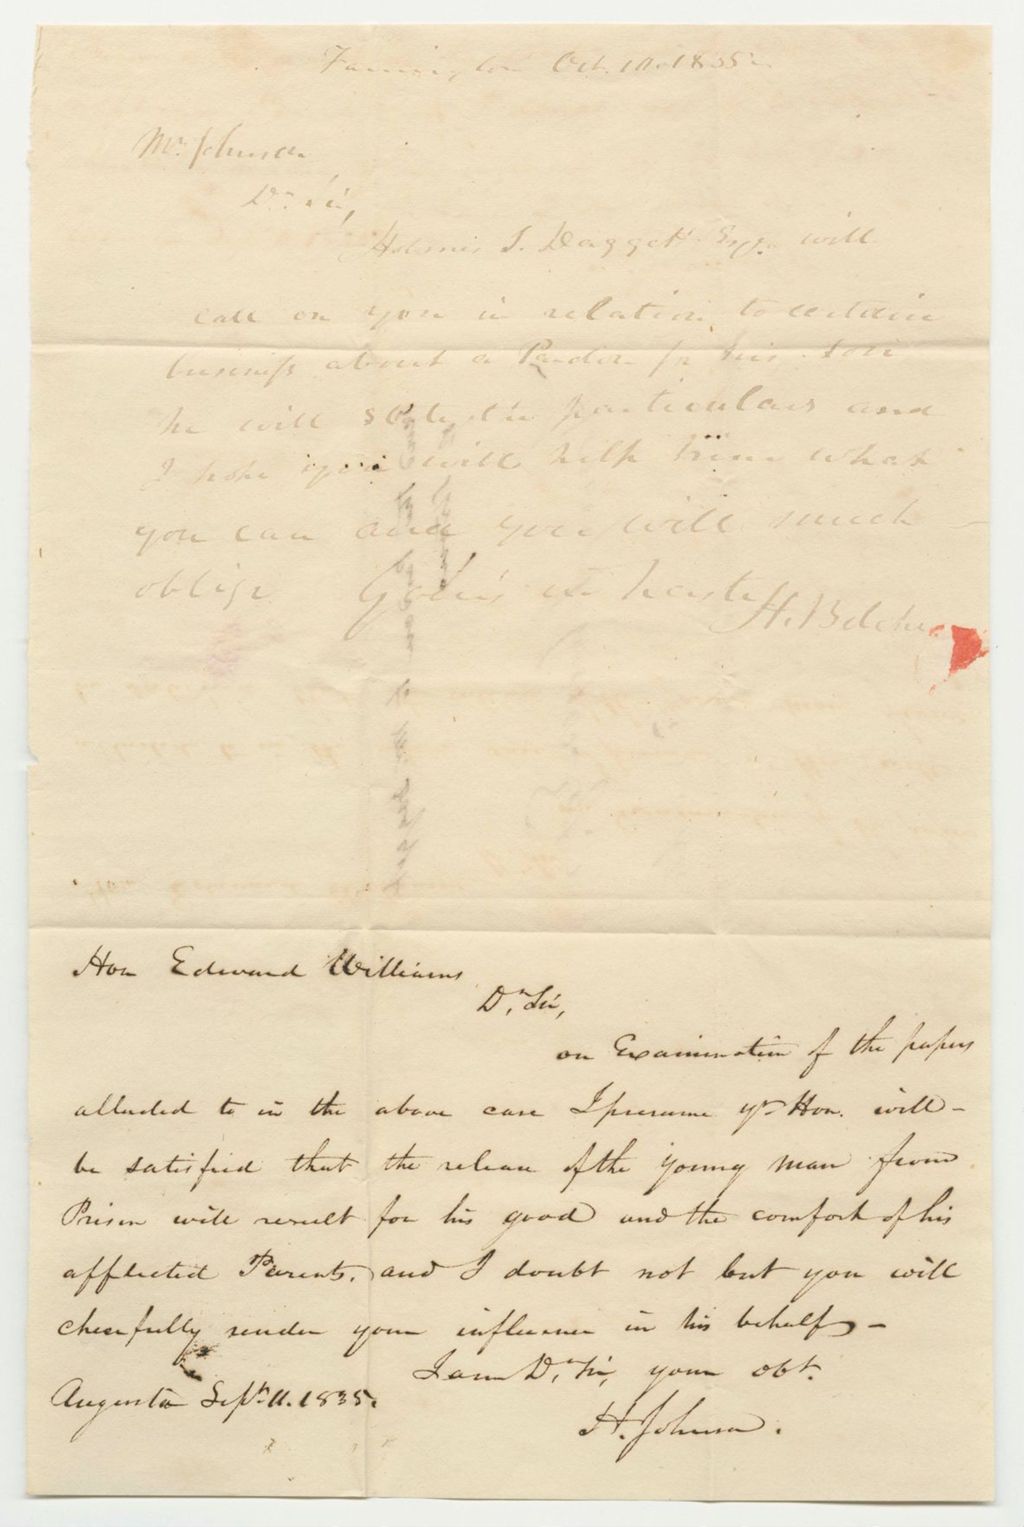 Farmington Oct. 10. 1835.
Mr. Johnson
Dr. Sir,
Holmes T. Daggett Esq. will
call on you in relation to certain
business about a Pardon for his son
he will state the particulars and
I hope you will help him what
you can and you will much
oblige Yours in haste
H. Belcher
Hon Edward Williams
Dr. Sir,
on Examination of the papers
alluded to in the above case I presume yr Hon. will -
be satisfied that the release of the young man from
Prison will result for his good and the comfort of his
afflicted Parents. and I doubt not but you will
cheerfully render your influence in his behalf -
I am Dr. Sir, your obt.
Augusta Sept. 11. 1835.
H. Johnson.